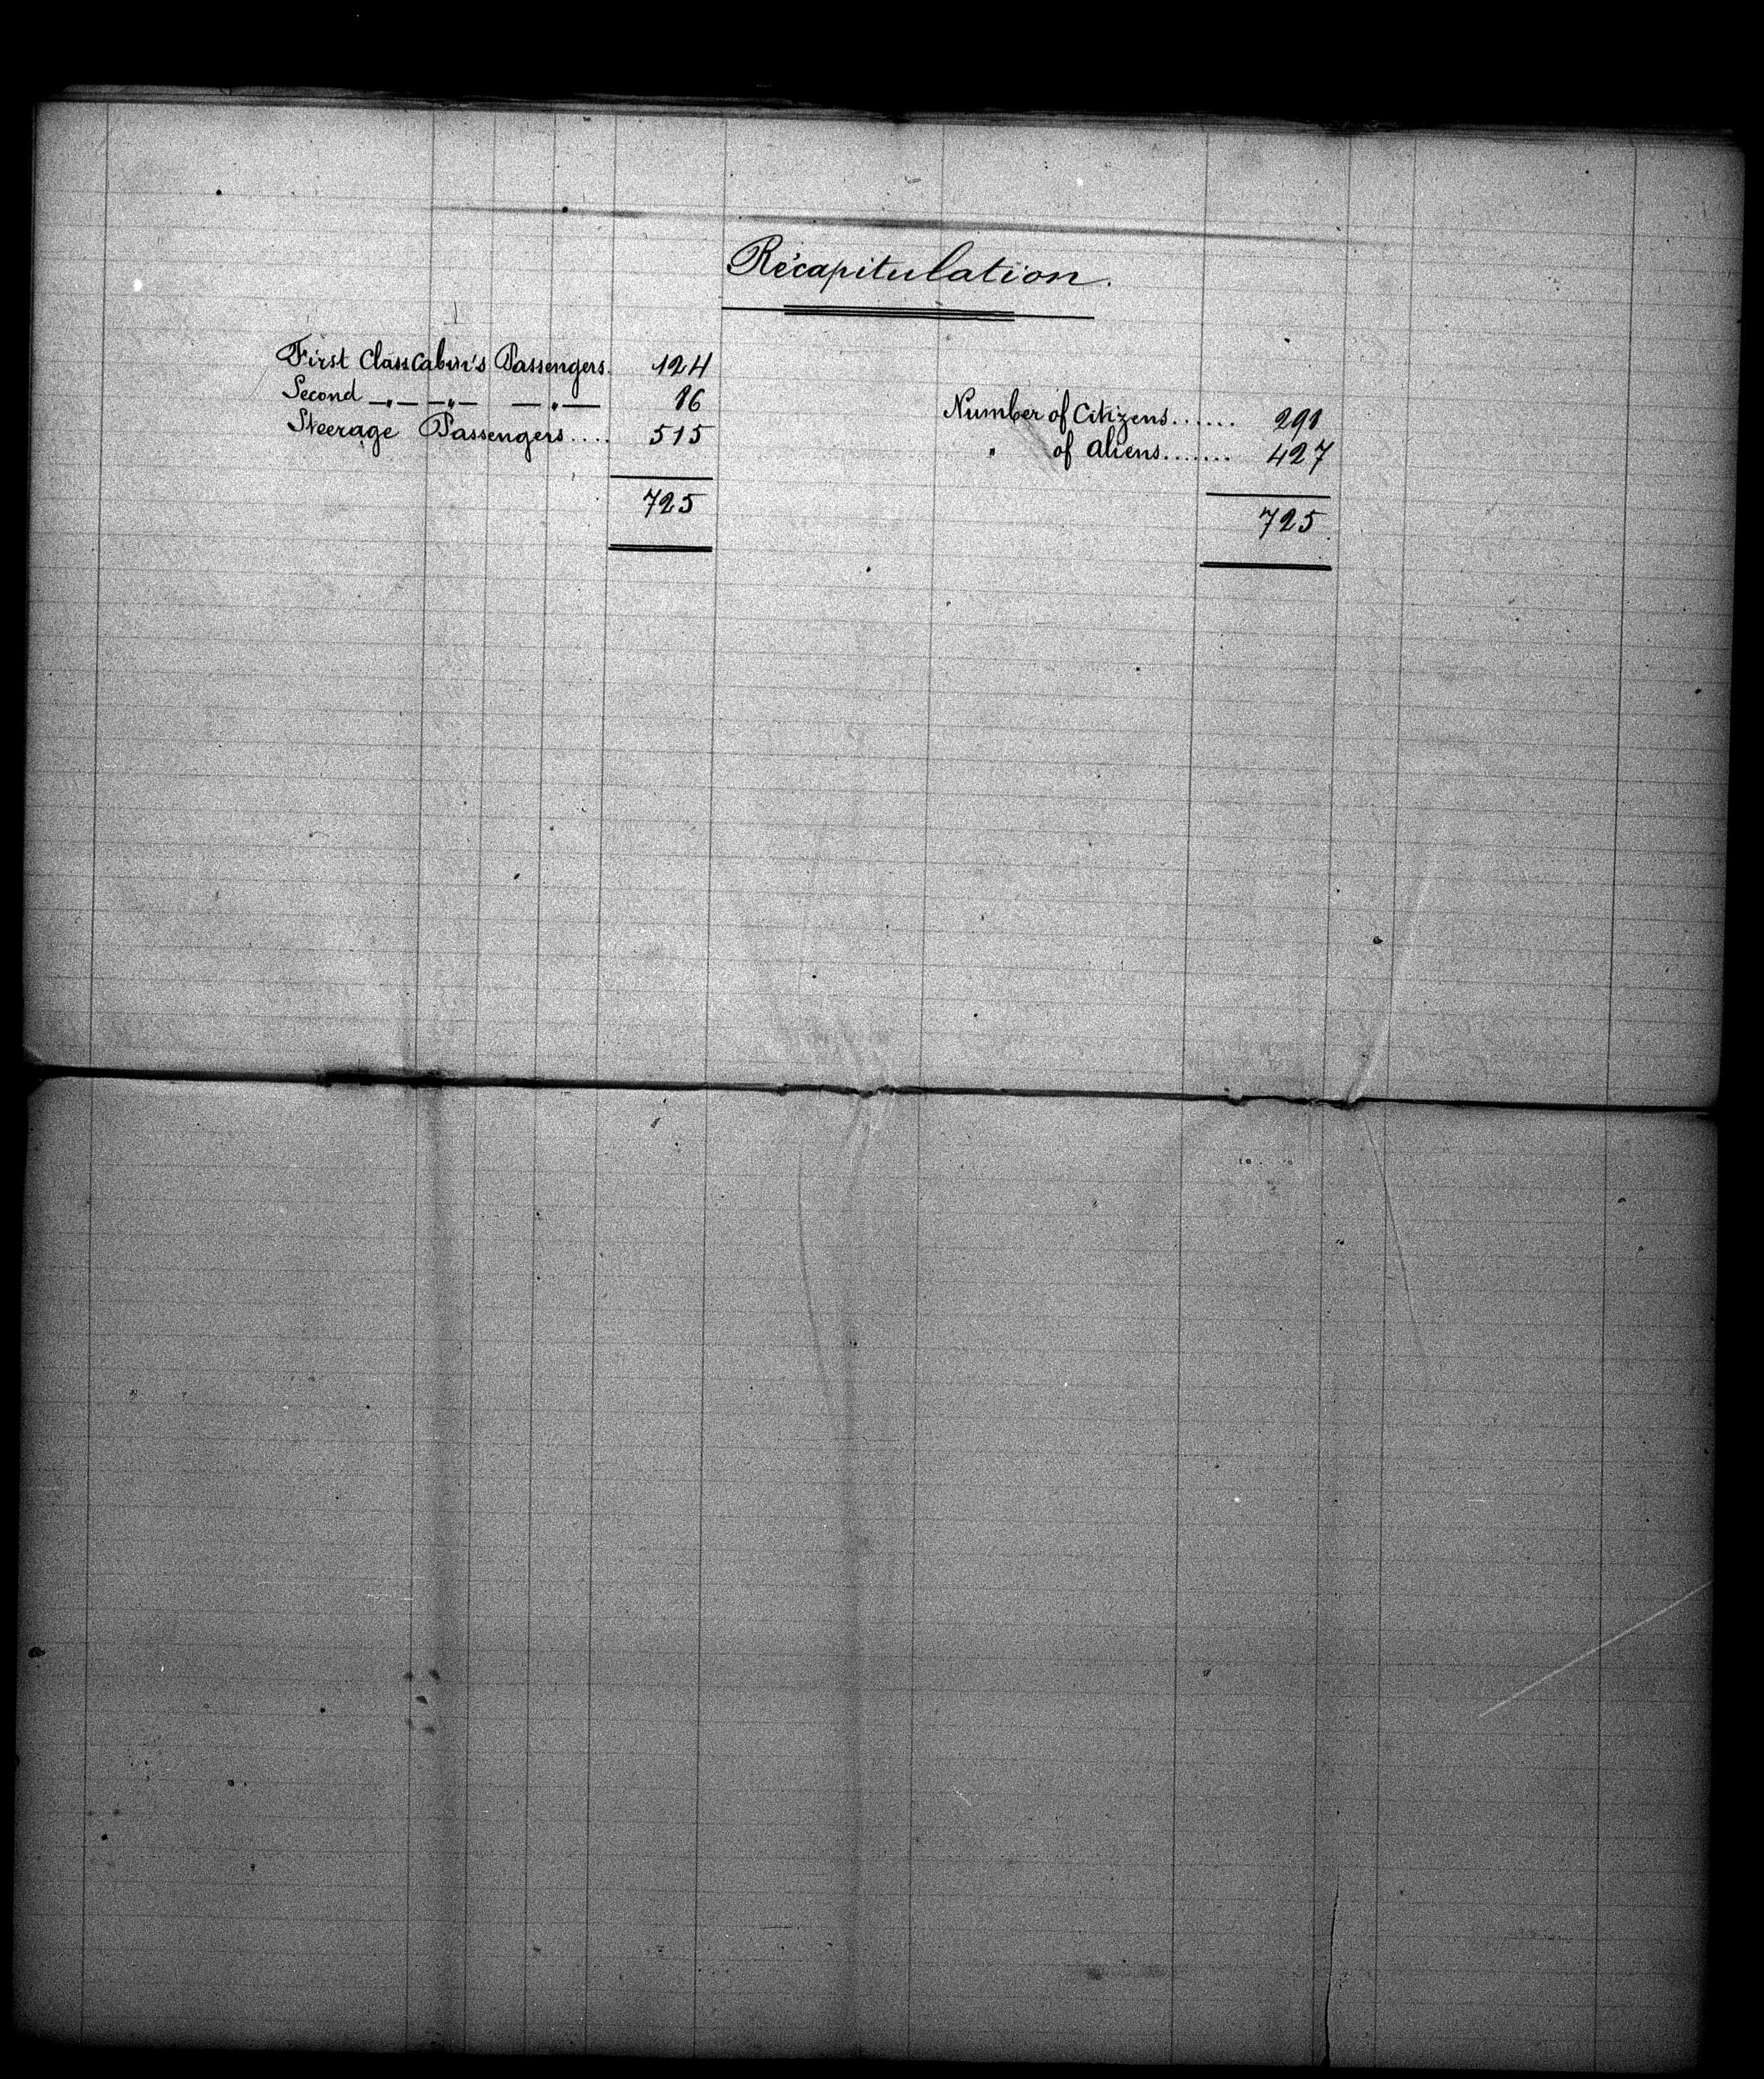 Récapitulation.
First Class cabin's Passengers. 124
Second —"— —"— —"— 86
Steerage Passengers.... 515
725
Number of Citizens...... 298
" of Aliens....... 427
725